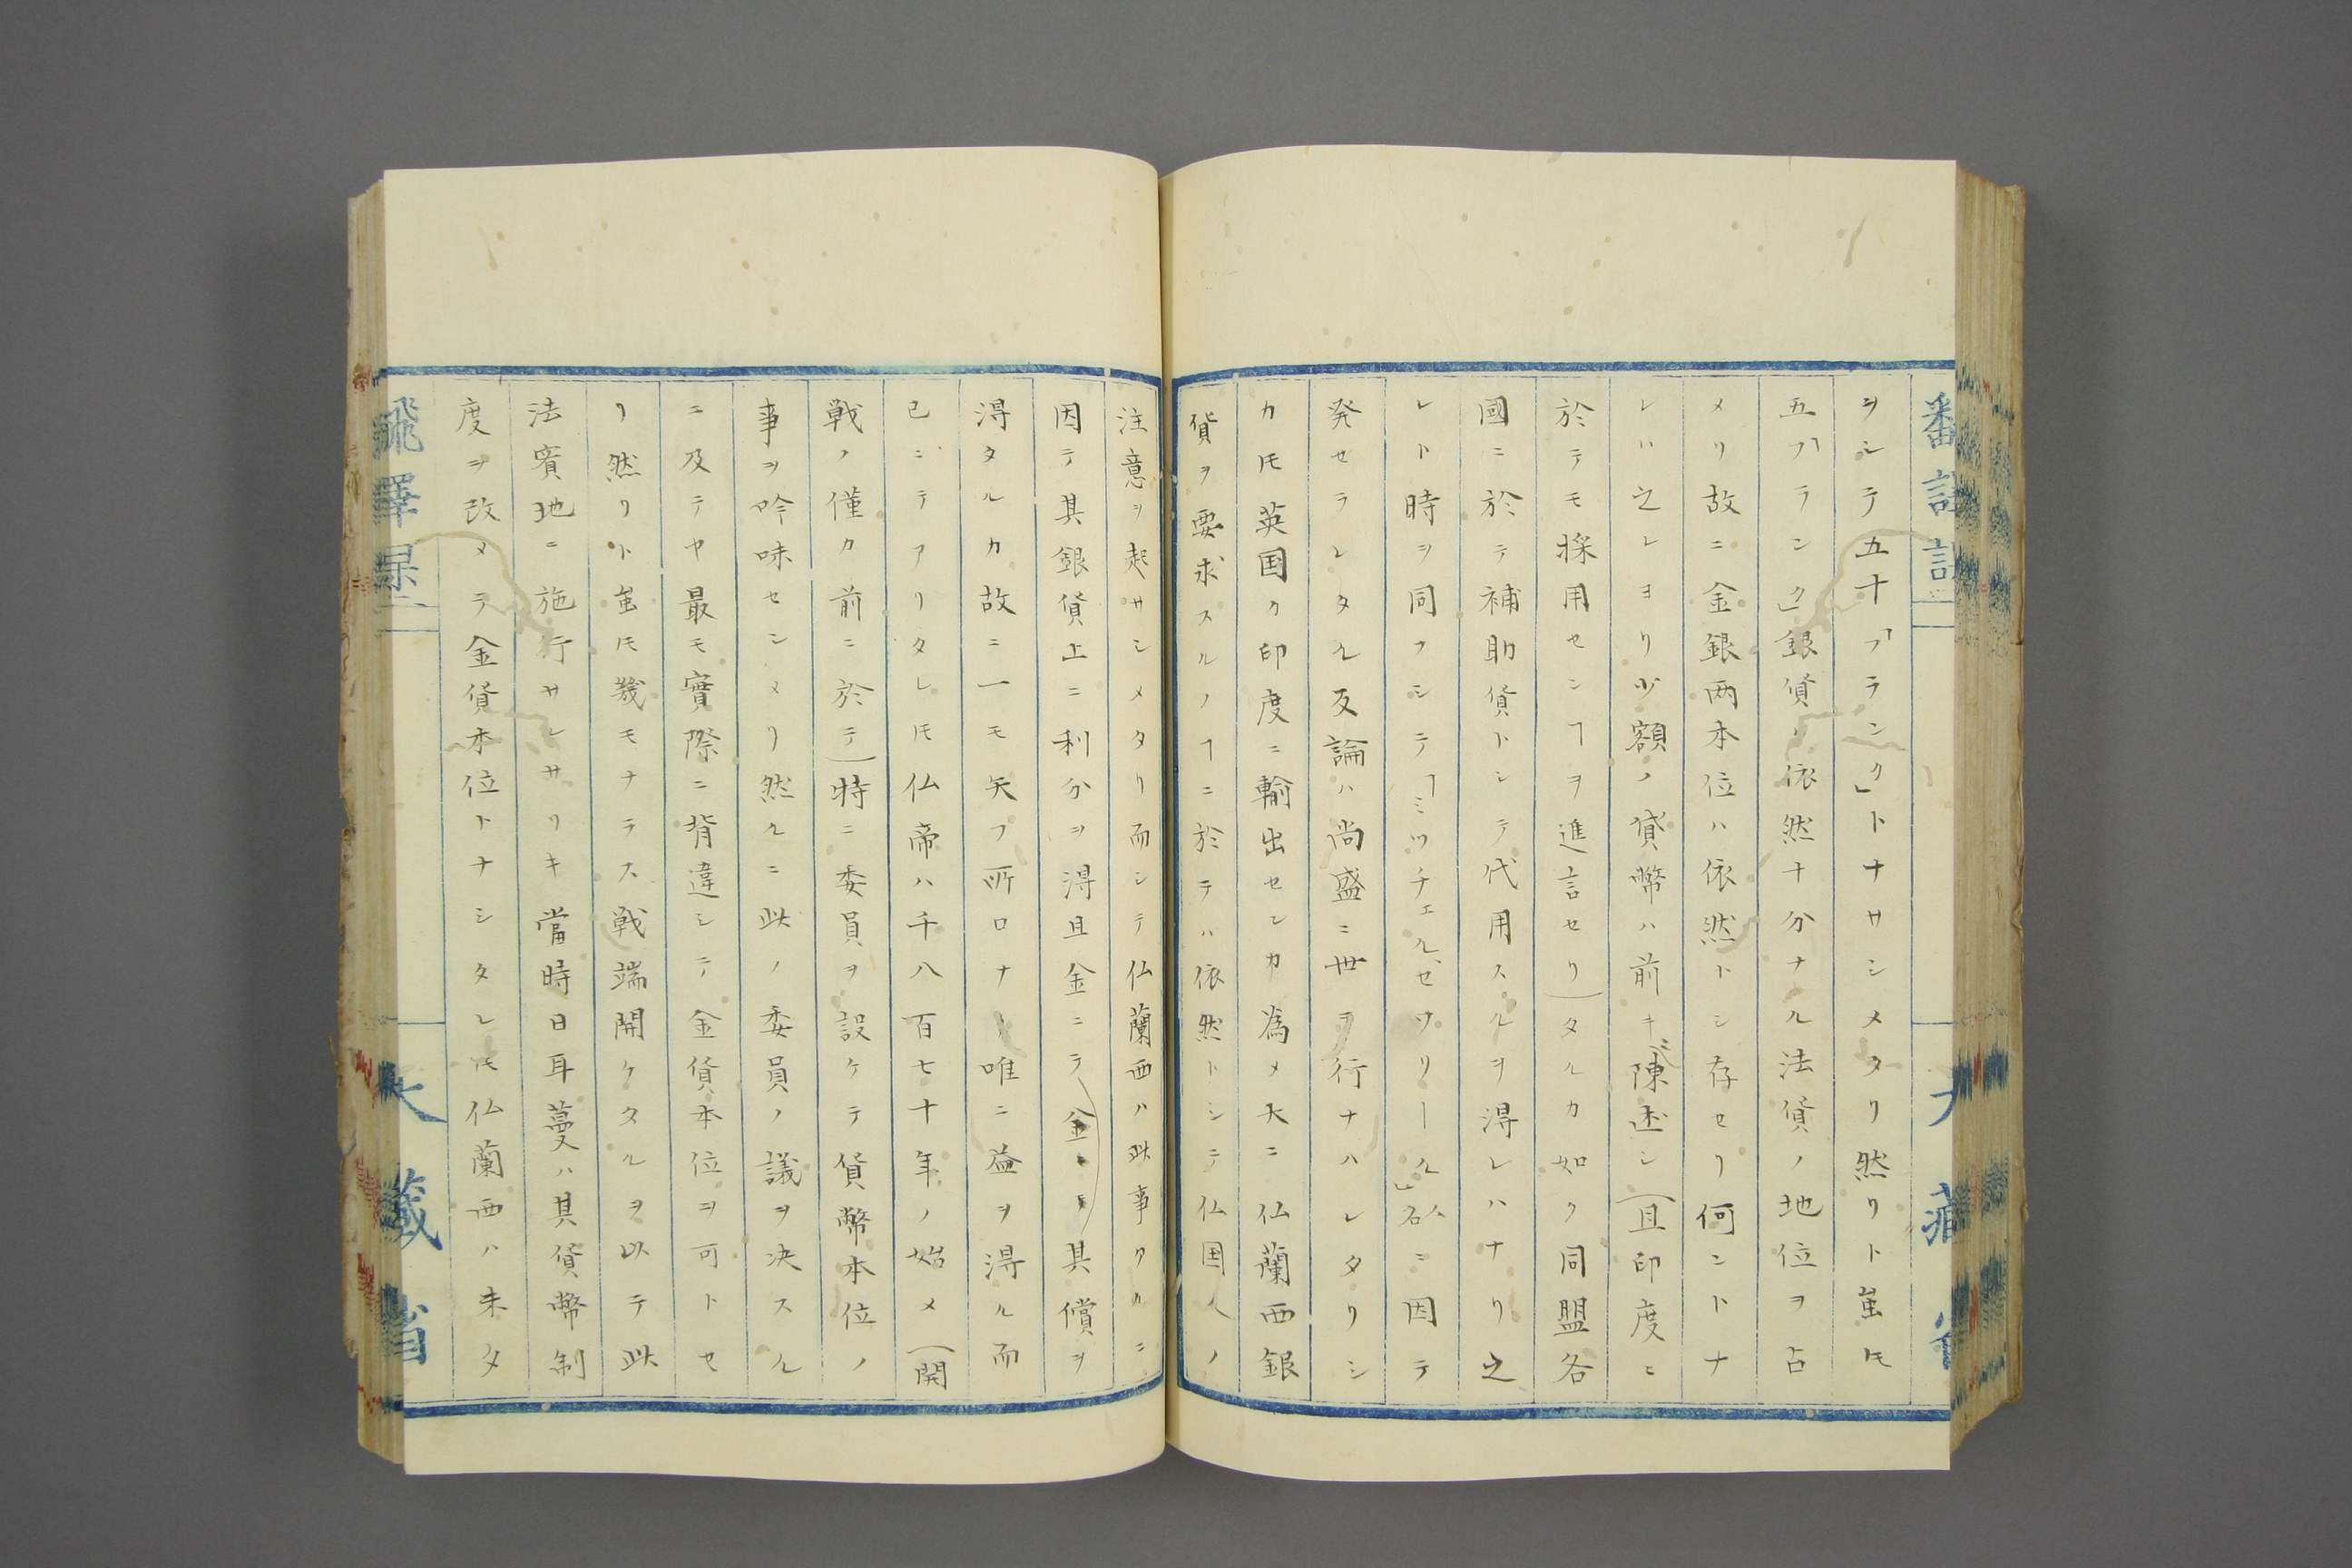 ヲシテ五十「フランク」トナサシメタリ然リト雖ㇳモ
五「フランク」銀貨ハ依然十分ナル法貨ノ地位ヲ占
メリ故ニ金銀両本位ハ依然トシ存セリ何ントナ
レハ之レヨリ少額ノ貨幣ハ前キ陳述シ(且印度ニ
於テモ採用センヿヲ進言セリ)タルカ如ク同盟各
國ニ於テ補助貨トシテ代用スルヲ得レハナリ之
レト時ヲ同フシテ「ミッチェル、セヅリール」名ニ因テ
発セラレタル反論ハ尚盛ニ世ヲ行ナハレタリシ
カ𪜈英国ク印度ニ輸出センカ為メ大ニ仏蘭西銀
貨ヲ要求スルノヿニ於テハ依然トシテ仏国人ノ
注意ヲ起サシメタリ而シテ仏蘭西ハ此事カカニ
因テ其銀貨上ニ利分ヲ得且金ニテ其償ヲ
得タルカ故ニ一モ矢フ所ロナシ唯ニ益ヲ得ル而
已ニテアリタレ𪜈仏帝ハ千八百七十年ノ始メ(開
戦ノ僅カ前ニ於テ)特ニ委員ヲ設ケテ貨幣本位ノ
事ヲ吟味センメリ然ルニ此ノ委員ノ議ヲ决スル
ニ及テヤ最モ實際ニ背違シテ金貨本位ヲ可トセ
リ然リト雖𪜈幾モナラス戦端開ケタルヲ以テ此
法實地ニ施行サレサリキ當時日耳蔓ハ其貨幣制
度ヲ改メテ金貨本位トナシタレ𪜈仏蘭西ハ未タ
大藏省